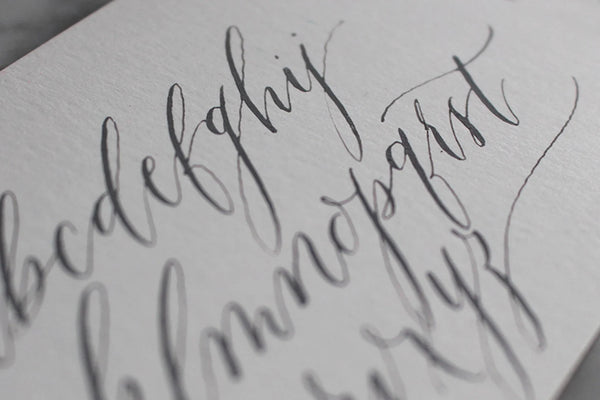 bcdefghij
klmnopqrst
xyz